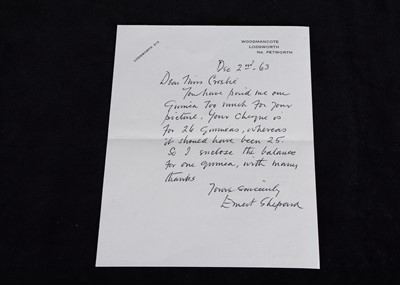 WOODMANCOTE
LODSWORTH
Nr. PETWORTH
LODSWORTH
Dec 2nd - 63
Dear Miss
You have paid me one
Guinea too much for your
picture. Your cheque is
for 26 Guineas, whereas
it should have been 25.
So I enclose the balance
for one guinea, with many
thanks
Yours sincerely
Ernest Shepard